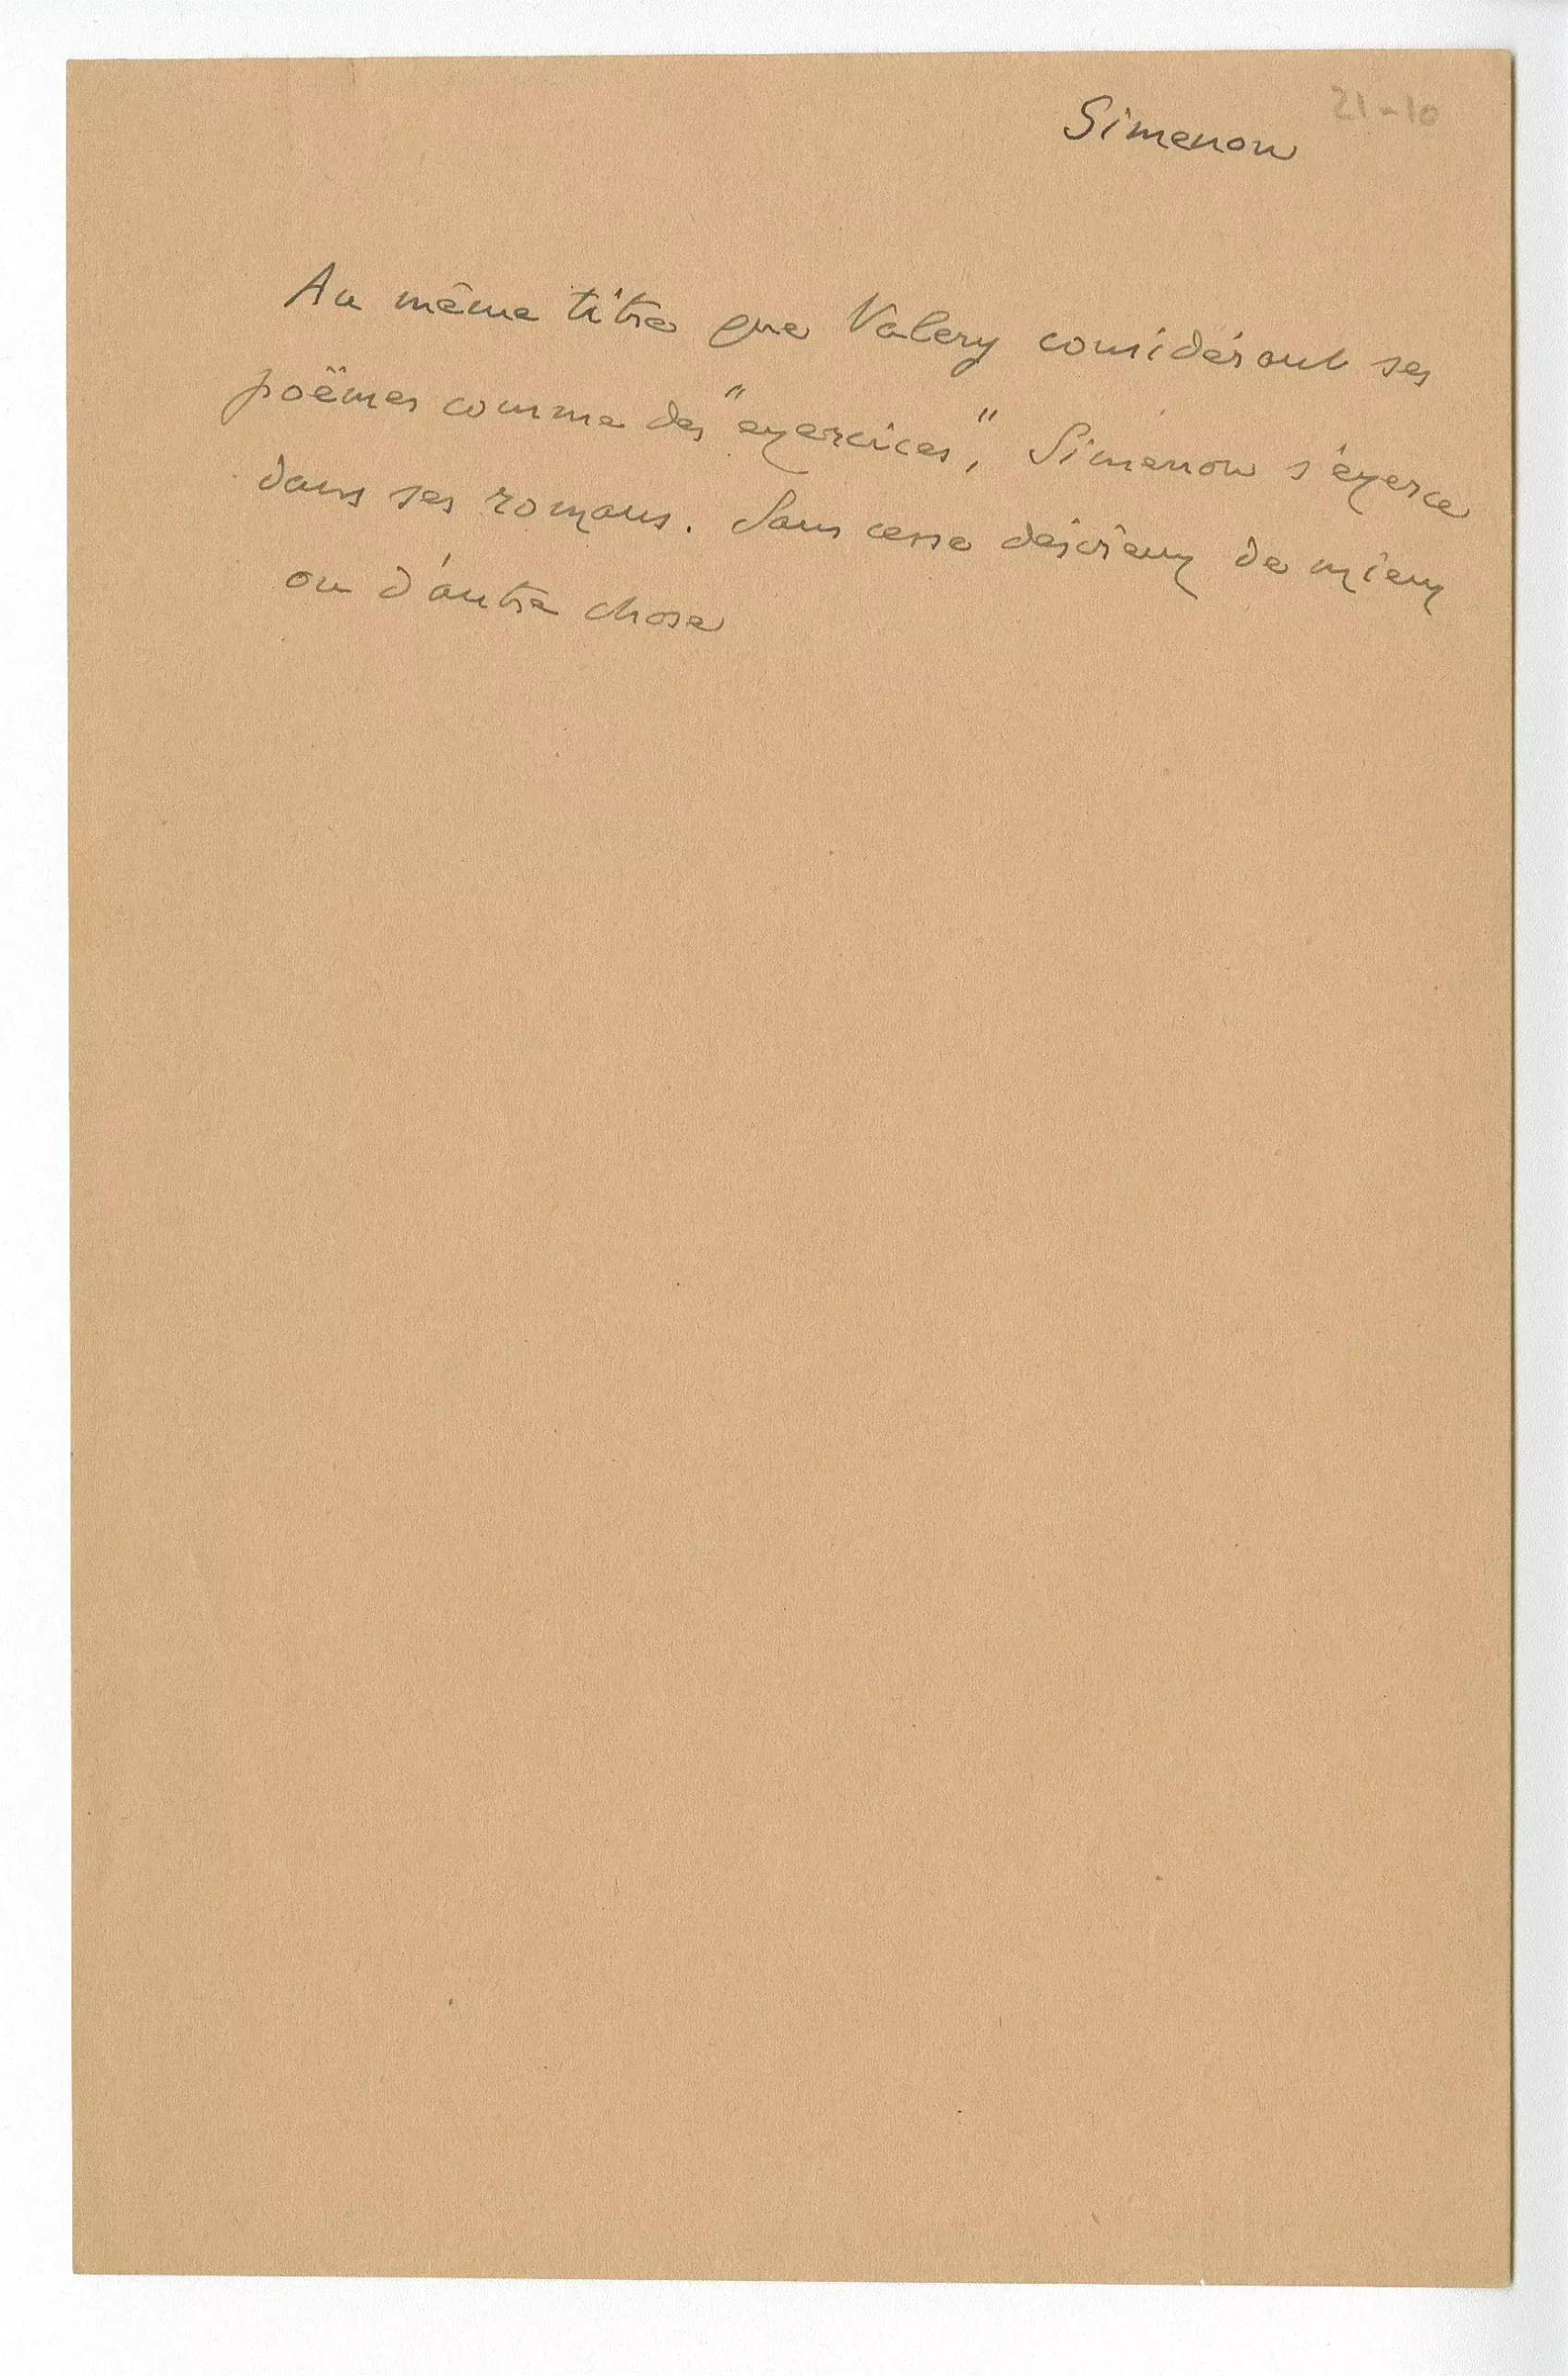 21-10
Simenon
Au même titre que Valery considérant ses
poëmes comme des "exercices", Simenon s'exerce
dans ses romans. Sans cesse désireux de mieux
ou d'autre chose